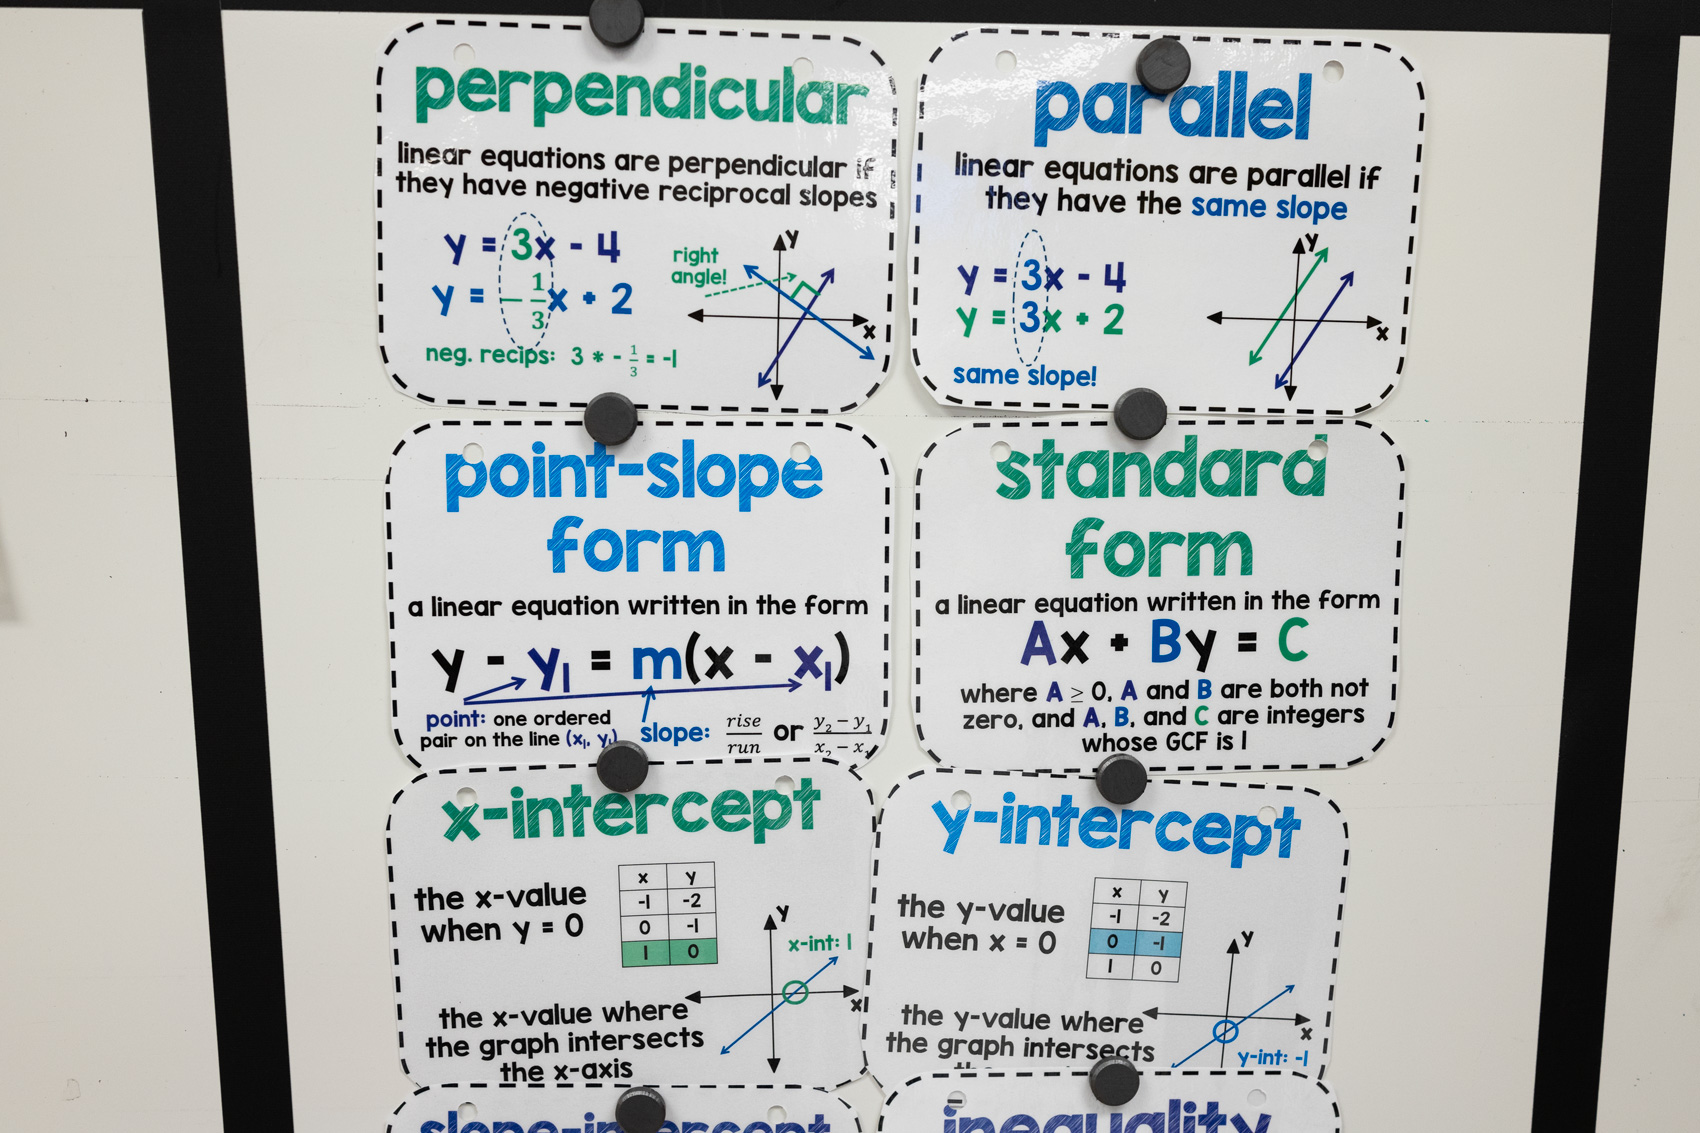 perpendicular
linear equations are perpendicular if
they have negative reciprocal slopes
y = 3x - 4
y = -1/3 x + 2
neg. recips: 3 * - 1/3 = -1
right
angle!
y
x
parallel
linear equations are parallel if
they have the same slope
y = 3x - 4
y = 3x + 2
same slope!
y
x
point-slope
form
a linear equation written in the form
y - y₁ = m(x - x₁)
point: one ordered
pair on the line (x₁, y₁)
slope: rise/run or y₂ − y₁/x₂ − x₁
standard
form
a linear equation written in the form
Ax + By = C
where A ≥ 0, A and B are both not
zero, and A, B, and C are integers
whose GCF is 1
x-intercept
the x-value
when y = 0
x y
-1 -2
0 -1
1 0
y
x-int: 1
x
the x-value where
the graph intersects
the x-axis
y-intercept
the y-value
when x = 0
x y
-1 -2
0 -1
1 0
y
x
y-int: -1
the y-value where
the graph intersects
slope-intercept
inequality